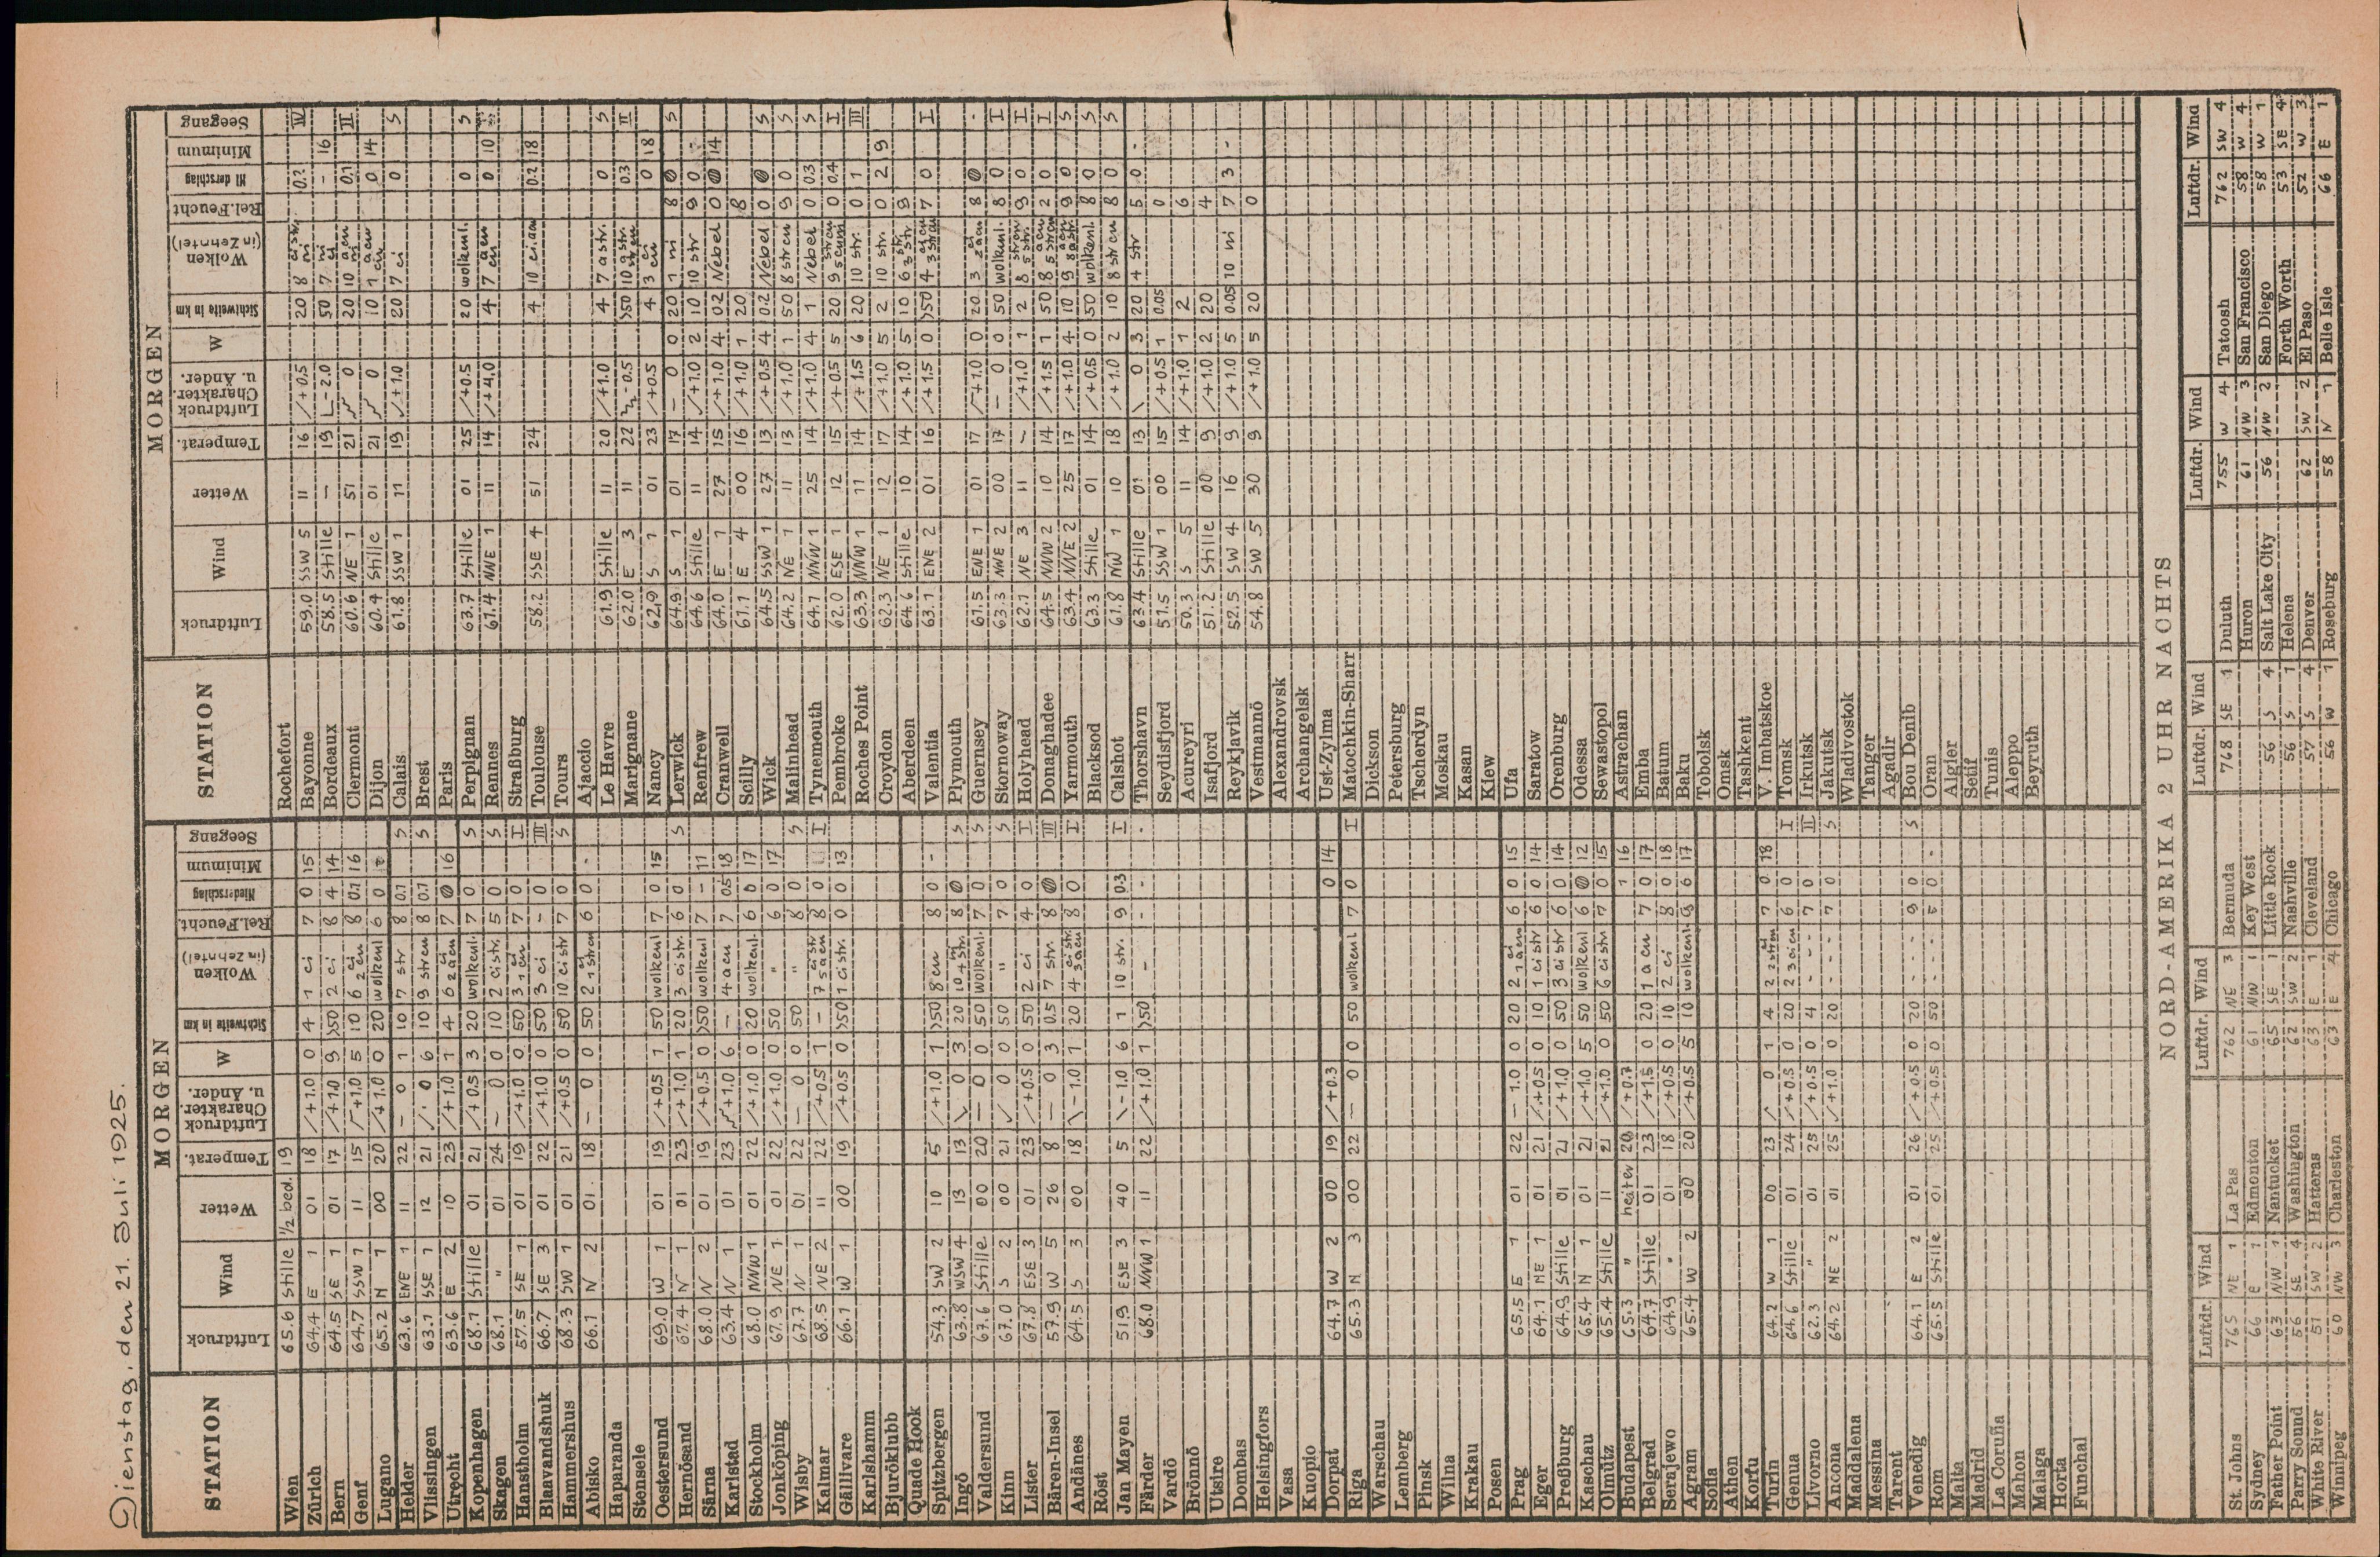 Dienstag, den 21. Juli 1925.
MORGEN
STATION Luftdruck Wind Wetter Temperat. Luftdruck Charakter. u. Änder. W Sichtweite in km Wolken (in Zehntel) Rel.Feucht Niederschlag Minimum Seegang
Wien 65.6 Stille ½ bed. 19
Zürich 64.4 E 1 01 18 /+1.0 0 4 1 ci 7 0 15
Bern 64.5 SE 1 01 17 /+1.0 9 >50 2 ci 8 4 14
Genf 64.7 SSW 1 11 15 +1.0 5 10 6 ci 2 cu 8 0.1 16
Lugano 65.2 N 1 00 20 /+1.0 0 20 wolkenl 6 0
Helder 63.6 ENE 1 11 22 – 0 1 10 7 str 8 0.1 S
Vlissingen 63.1 SSE 1 12 21 / 0 6 10 9 strcu 8 0.1 S
Utrecht 63.6 E 2 10 23 /+1.0 1 4 6 ci 2 acu 7 16
Kopenhagen 68.1 Stille 01 21 /+0.5 3 20 wolkenl. 7 0 S
Skagen 68.1 " 01 24 – 0 0 10 2 cistr. 5 0 S
Hanstholm 57.5 SE 1 01 19 /+1.0 0 50 3 ci 1 cu 7 0 I
Blaavandshuk 66.7 SE 3 01 22 /+1.0 0 50 3 ci - 0 III
Hammershus 68.3 SW 1 01 21 /+0.5 0 50 10 cistr 7 0 S
Abisko 66.1 N 2 01 18 – 0 0 50 2 ci 1 strcu 6 0 -
Haparanda
Stensele
Oestersund 69.0 W 1 01 19 /+0.5 1 50 wolkenl 7 0 15
Hernösand 67.4 N 1 01 23 /+1.0 1 20 3 cistr. 6 0 S
Särna 68.0 N 2 01 19 /+0.5 0 >50 wolkenl 7 - 11
Karlstad 63.4 N 1 01 23 +1.0 6 - 4 acu 7 0.5 18
Stockholm 68.0 NNW 1 01 22 /+1.0 0 20 wolkenl. 6 0 17
Jonköping 67.9 NE 1 01 22 /+1.0 0 50 " 6 0 17
Wisby 67.7 N 1 01 22 – 0 0 50 " 8 0 S
Kalmar 68.5 NE 2 11 22 /+0.5 1 - 7 cistr 5 acu 8 0 I
Gällivare 66.1 W 1 00 19 /+0.5 0 >50 1 cistr. 0 0 13
Karlshamm
Bjuröklubb
Quade Hook
Spitzbergen 54.3 SW 2 10 5 /+1.0 1 >50 8 cu 8 0 -
Ingö 63.8 WSW 4 13 13 \ 0 3 20 10 8 S
Valdersund 67.6 Stille 00 20 – 0 0 50 wolkenl. 7 0 S
Kinn 67.0 S 2 00 21 0 0 50 " 7 0 S
Lister 67.8 ESE 3 01 23 /+0.5 0 50 2 ci 4 0 I
Bären-Insel 57.9 W 5 26 8 – 0 3 0.5 7 str. 8 III
Andänes 64.5 S 3 00 18 \-1.0 1 20 4 cistr. 3 acu 8 0 I
Röst
Jan Mayen 51.9 ESE 3 40 5 \-1.0 6 1 10 str. 9 0.3 I
Färder 68.0 NNW 1 11 22 /+1.0 1 >50 - - - -
Vardö
Brönnö
Utsire
Dombas
Helsingfors
Vasa
Kuopio
Dorpat 64.7 W 2 00 19 /+0.3 0 14
Riga 65.3 N 3 00 22 – 0 0 50 wolkenl 7 0 I
Warschau
Lemberg
Pinsk
Wilna
Krakau
Posen
Prag 65.5 E 1 01 22 – 1.0 0 20 2 ci 1 acu 6 0 15
Eger 64.1 NE 1 01 21 /+0.5 0 10 1 cistr 6 0 14
Preßburg 64.9 Stille 01 21 /+1.0 0 50 3 cistr 6 0 14
Kaschau 65.4 N 1 01 21 /+1.0 5 50 wolkenl 6 12
Olmütz 65.4 Stille 11 21 /+1.0 0 50 6 cistr 7 0 15
Budapest 65.3 " heiter 20 /+0.7 1 16
Belgrad 64.7 Stille 01 23 /+1.5 0 20 1 acu 7 0 17
Serajewo 64.9 " 01 18 /+0.5 0 10 2 ci 8 0 18
Agram 65.4 W 2 00 20 /+0.5 5 10 wolkenl. 9 6 17
Sofia
Athen
Korfu
Turin 64.2 W 1 00 23 / 0 1 4 2 ci 2 strcu 7 0 18
Genua 64.6 Stille 01 24 /+0.5 0 20 2 3 cicu 6 0 I
Livorno 62.3 " 01 25 /+0.5 0 4 - - - 7 0 II
Ancona 64.2 NE 2 01 25 /+1.0 0 20 - - - 7 0 S
Maddalena
Messina
Tarent
Venedig 64.1 E 2 01 26 /+0.5 0 20 - - - 9 0 S
Rom 65.5 Stille 01 25 /+0.5 0 50 - - - 0 -
Malta
Madrid
La Coruña
Mahon
Malaga
Horta
Funchal
MORGEN
STATION Luftdruck Wind Wetter Temperat. Luftdruck Charakter. u. Änder. W Sichtweite in km Wolken (in Zehntel) Rel.Feucht Niederschlag Minimum Seegang
Rochefort
Bayonne 59.0 SSW 5 11 16 /+0.5 20 8 cistr. ni 0.2 IV
Bordeaux 58.5 Stille – 19 -2.0 50 7 ni ci - 16
Clermont 60.6 NE 1 51 21 0 20 10 acu ni 0.1 II
Dijon 60.4 Stille 01 21 0 10 1 acu cu 0 14
Calais 61.8 SSW 1 11 19 /+1.0 20 7 ci 0 S
Brest
Paris
Perpignan 63.7 Stille 01 25 /+0.5 20 wolkenl. 0 S
Rennes 61.4 NNE 1 11 14 /+4.0 4 7 acu cu 0 10
Straßburg
Toulouse 58.2 SSE 4 51 24 4 10 ci.acu 0.2 18
Tours
Ajaccio
Le Havre 61.9 Stille 11 20 /+1.0 4 7 astr. 0 S
Marignane 62.0 E 3 11 22 -0.5 >50 10 astr. strcu 0.3 II
Nancy 62.9 S 1 01 23 /+0.5 4 3 ci cu 0 18
Lerwick 64.9 S 1 01 17 – 0 0 20 1 ni 8 S
Renfrew 64.6 Stille 11 14 /+1.0 2 10 10 str 9 0
Cranwell 64.0 E 1 27 15 /+1.0 4 0.2 Nebel 0 14
Scilly 61.1 E 4 00 16 /+1.0 1 20 8
Wick 64.5 SSW 1 27 13 /+0.5 4 0.2 Nebel 0 S
Malinhead 64.2 NE 1 11 13 /+1.0 1 50 8 strcu 9 0 S
Tynemouth 64.1 NNW 1 25 14 /+1.0 4 1 Nebel 0 0.3 S
Pembroke 62.0 ESE 1 12 15 /+0.5 5 20 9 strcu 5 cum 0 0.4 I
Roches Point 63.3 NNW 1 11 14 /+1.5 6 20 10 str. 0 1 III
Croydon 62.3 NE 1 12 17 /+1.0 5 2 10 str. 0 2 9
Aberdeen 64.6 Stille 10 14 /+1.0 5 10 6 str. 9
Valentia 63.1 ENE 2 01 16 /+1.5 0 >50 4 acu 3 strcu 7 0 I
Plymouth
Guernsey 61.5 ENE 1 01 17 +1.0 0 20 3 ci 2 acu 8 -
Stornoway 63.3 NNE 2 00 17 – 0 0 50 wolkenl. 8 0 I
Holyhead 62.1 NE 3 11 – /+1.0 1 2 8 strcu 5 str. 9 0 I
Donaghadee 64.5 NNW 2 10 14 /+1.5 1 50 8 acu 5 strcu 2 0 I
Yarmouth 63.4 NNE 2 25 17 /+1.0 4 10 9 acu 8 astr. 9 0 S
Blacksod 63.3 Stille 01 14 /+0.5 0 50 wolkenl. 8 0 S
Calshot 61.8 NW 1 10 18 /+1.0 2 10 8 strcu 8 0 S
Thorshavn 63.4 Stille 01 13 \ 0 3 20 4 str 5 0 -
Seydisfjord 51.5 SSW 1 00 15 /+0.5 1 0.05 0
Acureyri 50.3 S 5 11 14 /+1.0 1 2 6
Isafjord 51.2 Stille 00 9 /+1.0 2 20 4
Reykjavik 52.5 SW 4 16 9 /+1.0 5 0.05 10 ni 7 3 -
Vestmannö 54.8 SW 5 30 9 /+1.0 5 20 0
Alexandrovsk
Archangelsk
Ust-Zylma
Matochkin-Sharr
Dickson
Petersburg
Tscherdyn
Moskau
Kasan
Kiew
Ufa
Saratow
Orenburg
Odessa
Sewastopol
Astrachan
Emba
Batum
Baku
Tobolsk
Omsk
Tashkent
V. Imbatskoe
Tomsk
Irkutsk
Jakutsk
Wladivostok
Tanger
Agadir
Bou Denib
Oran
Algier
Setif
Tunis
Aleppo
Beyruth
NORD-AMERIKA 2 UHR NACHTS
Luftdr. Wind Luftdr. Wind Luftdr. Wind Luftdr. Wind Luftdr. Wind
St. Johns 765 NE 1 La Pas 762 NE 3 Bermuda 768 SE 1 Duluth 755 W 4 Tatoosh 762 SW 4
Sydney 66 E 1 Edmonton 61 NW 1 Key West Huron 61 NW 3 San Francisco 58 W 4
Father Point 63 NW 1 Nantucket 65 SE 1 Little Rock 56 S 4 Salt Lake City 56 NW 2 San Diego 58 W 1
Parry Sound 56 SE 4 Washington 62 SW 2 Nashville 56 S 1 Helena Forth Worth 53 SE 4
White River 51 SW 2 Hatteras 63 E 1 Cleveland 57 S 4 Denver 62 SW 2 El Paso 52 W 3
Winnipeg 60 NW 3 Charleston 63 E 4 Chicago 56 W 1 Roseburg 58 N 1 Belle Isle 66 E 1